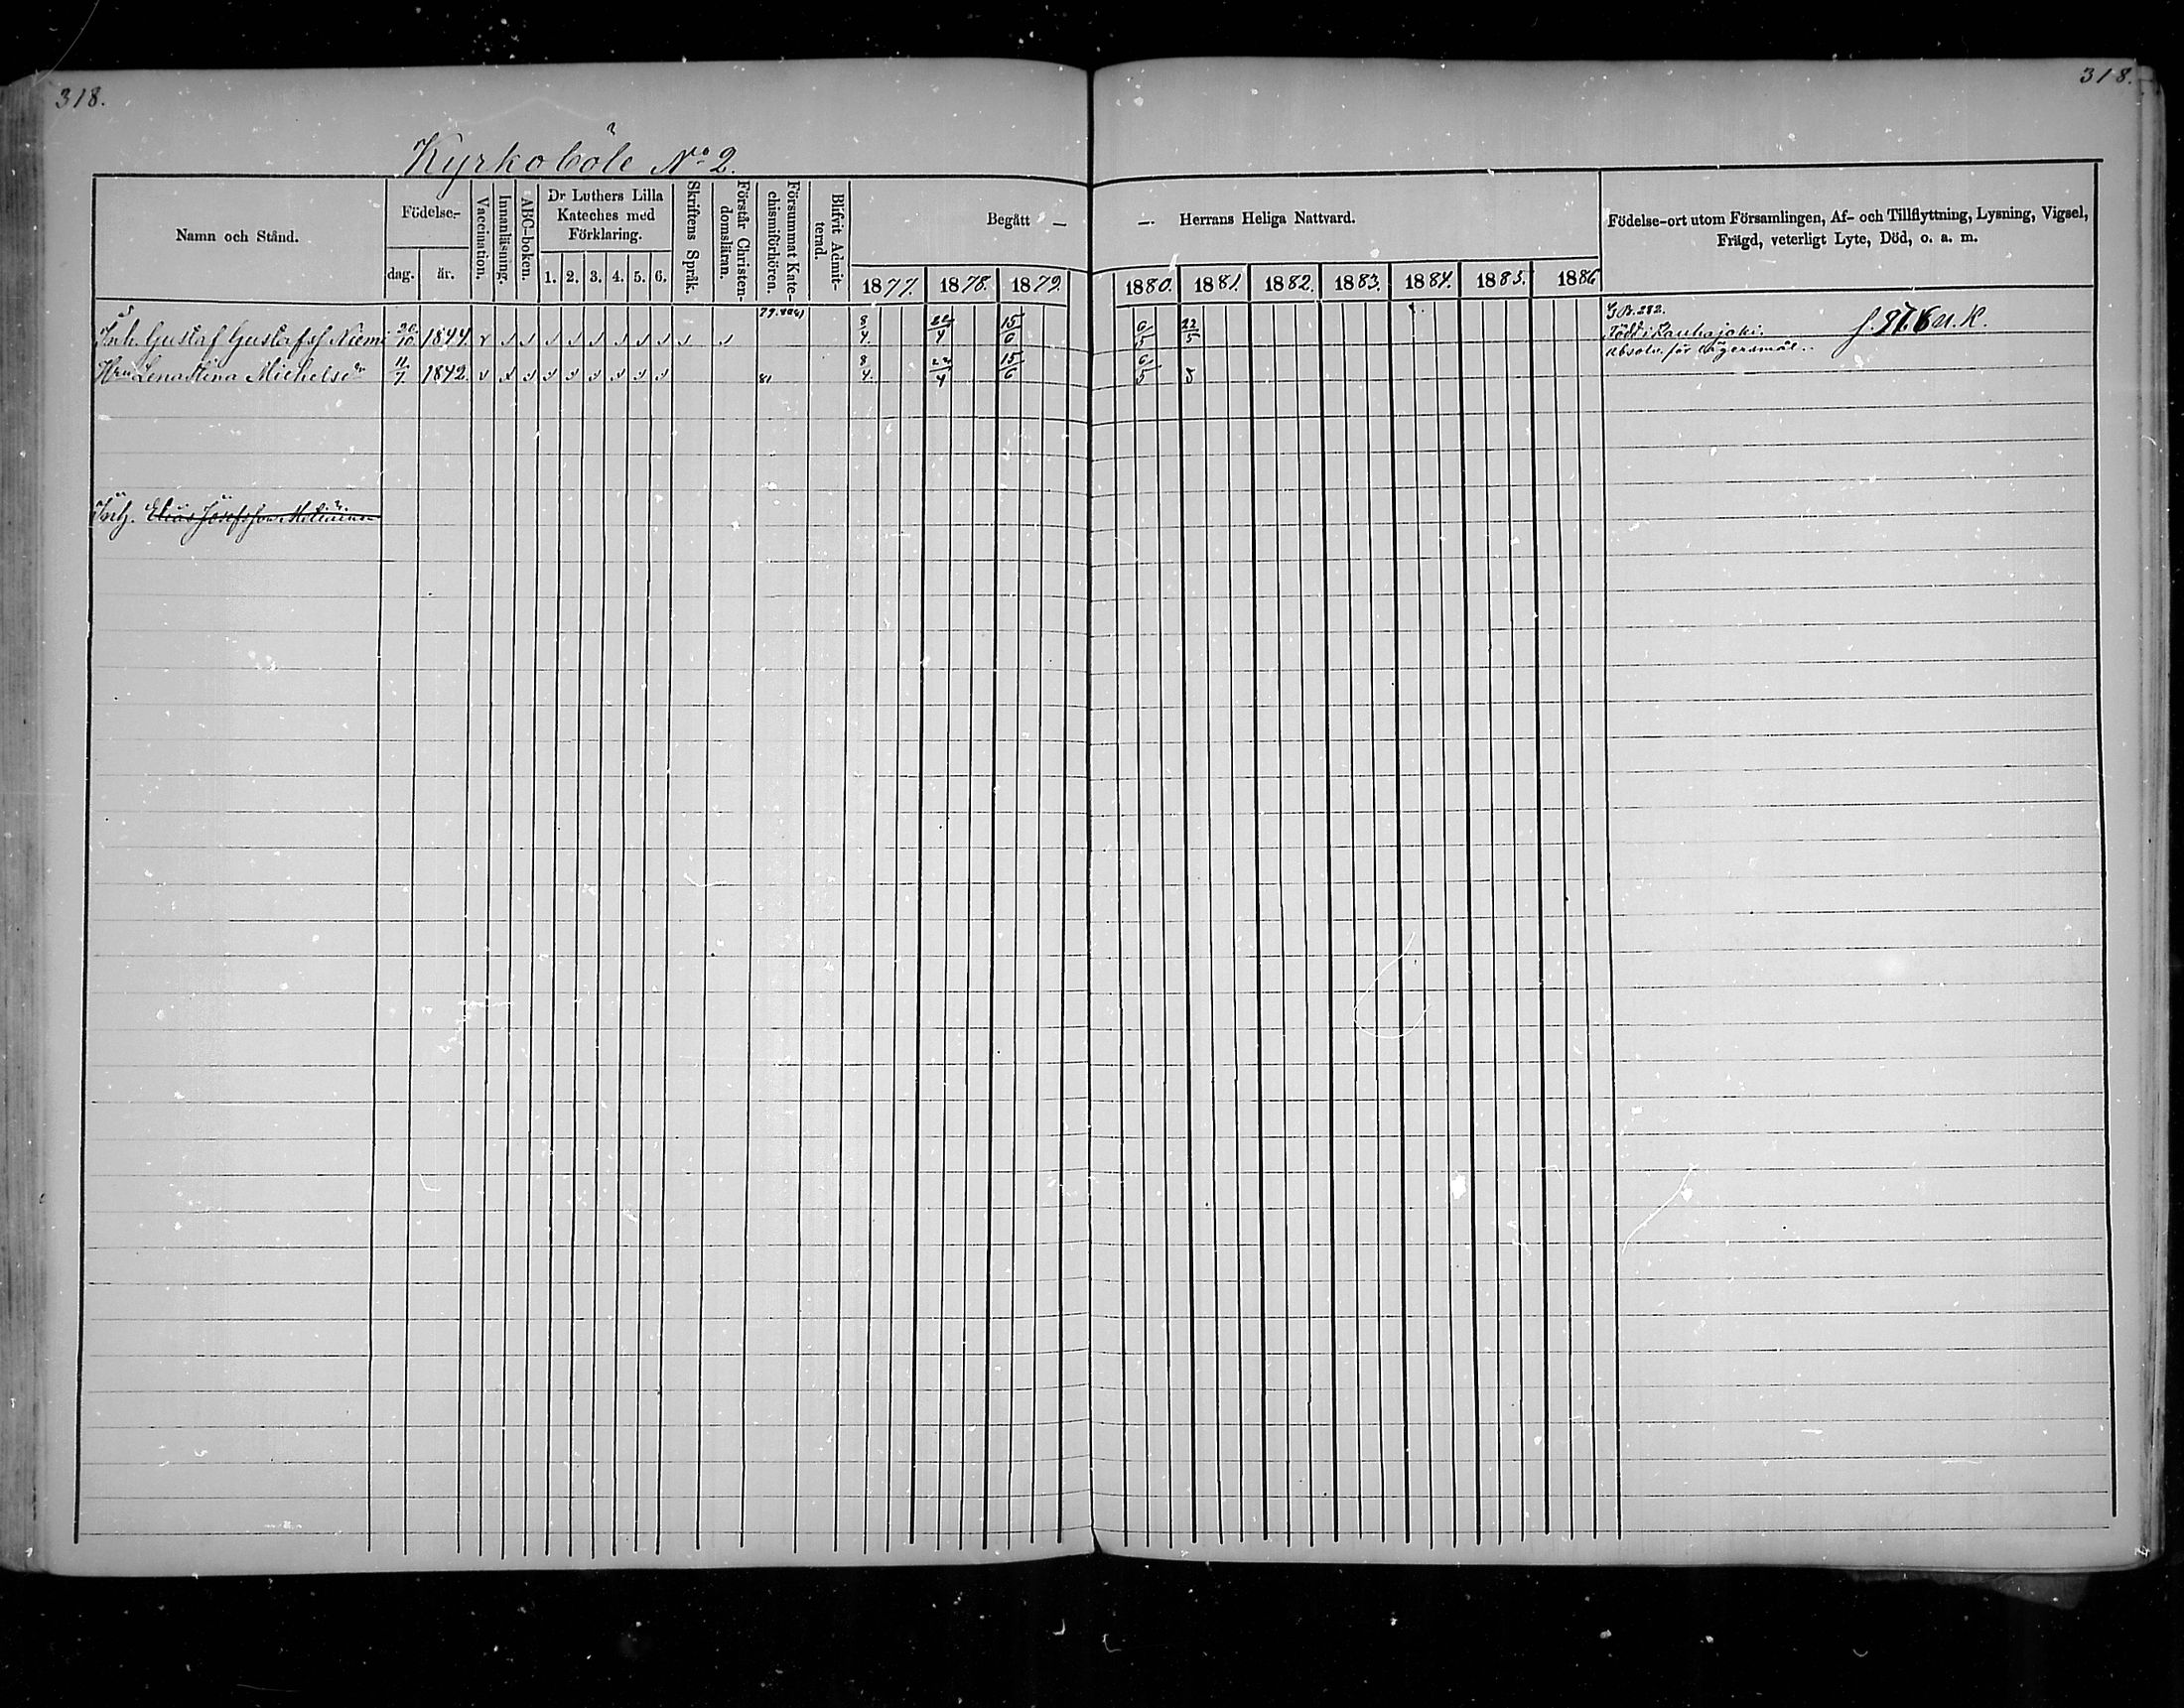 318.
318.
Kyrkoböle No 2.
Namn och Stånd.
Födelse-
dag.
år.
Vaccination.
Innanläsning.
ABC-boken.
Dr Luthers Lilla
Kateches med
Förklaring.
1. 2. 3. 4. 5. 6.
Skriftens Språk.
Förstår Christen-
domsläran.
Försummat Kate-
chismiförhören.
Blifvit Admit-
terad.
Begått —
— Herrans Heliga Nattvard.
1877. 1878. 1879. 1880. 1881. 1882. 1883. 1884. 1885. 1886
Födelse-ort utom Församlingen, Af- och Tillflyttning, Lysning, Vigsel,
Frägd, veterligt Lyte, Död, o. a. m.
Inh. Gustaf Gustafsf Niemi 20/10 1844. 8/4. 22/4 15/6 6/5 22/5
S.B. 282.
Född i Kauhajoki.
absolv. för lägersmål.
Hru Lena Stina Michelsdr 11/7 1842. 81 8/4. 22/4 15/6 6/5 5
Inh. Elias Josefsson